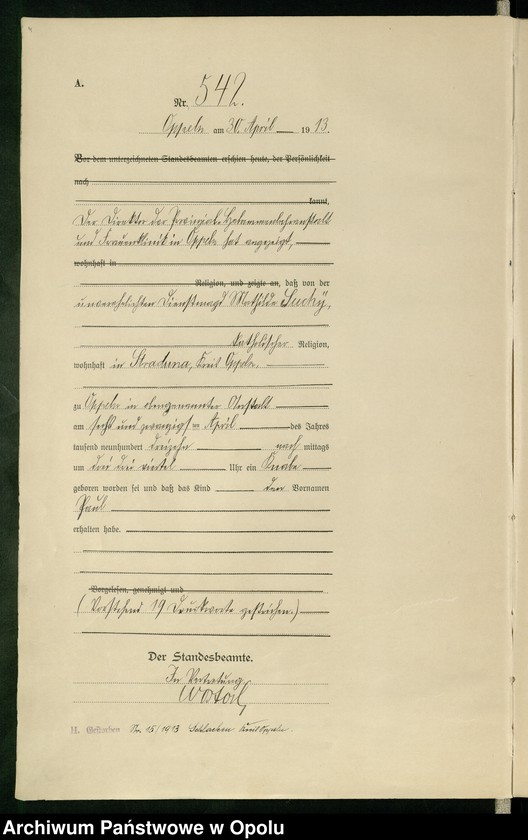 A.
Nr. 542.
Oppeln am 30. April 1913.
Vor dem unterzeichneten Standesbeamten erschien heute, der Persönlichkeit
nach
kannt,
Der Direktor der Provinzial-Hebammenlehranstalt
und Frauenklinik in Oppeln hat angezeigt,
wohnhaft in
Religion, und zeigte an, daß von der
unverehelichten Dienstmagd Mathilde Suchy,
katholischer Religion,
wohnhaft in Straduna, Kreis Oppeln
zu Oppeln in obengenannter Anstalt
am sechs und zwanzigsten April des Jahres
tausend neunhundert dreizehn nach mittags
um drei drei viertel Uhr ein Knabe
geboren worden sei und daß das Kind den Vornamen
Paul
erhalten habe.
Vorgelesen, genehmigt und
(Vorstehend 19 Druckworte gestrichen.)
Der Standesbeamte.
In Vertretung.
H. Gestorben Nr. 15/1913 Kreis Oppeln.
Archiwum Państwowe w Opolu